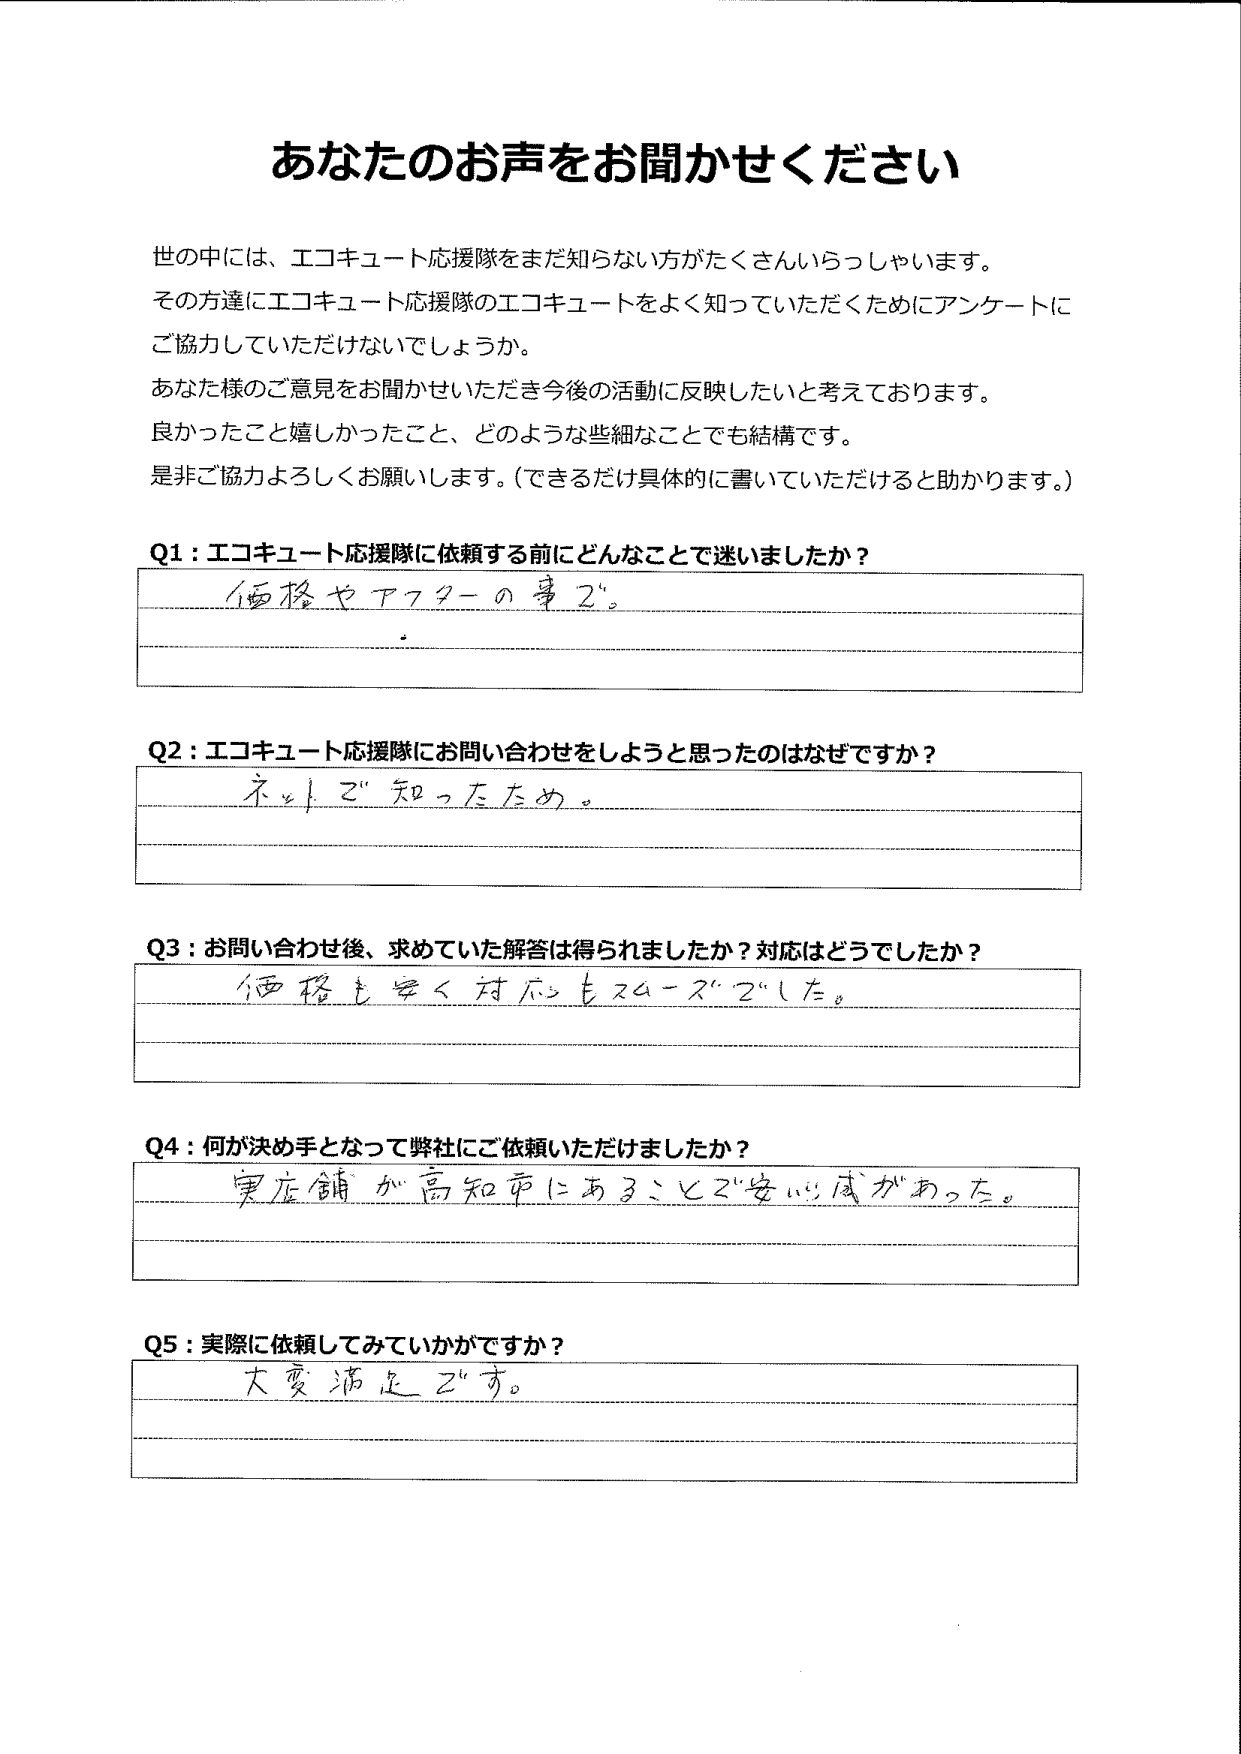 あなたのお声をお聞かせください
世の中には、エコキュート応援隊をまだ知らない方がたくさんいらっしゃいます。
その方達にエコキュート応援隊のエコキュートをよく知っていただくためにアンケートに
ご協力していただけないでしょうか。
あなた様のご意見をお聞かせいただき今後の活動に反映したいと考えております。
良かったこと嬉しかったこと、どのような些細なことでも結構です。
是非ご協力よろしくお願いします。（できるだけ具体的に書いていただけると助かります。）
Q1：エコキュート応援隊に依頼する前にどんなことで迷いましたか？
価格やアフターの事で。
Q2：エコキュート応援隊にお問い合わせをしようと思ったのはなぜですか？
ネットで知ったため。
Q3：お問い合わせ後、求めていた解答は得られましたか？対応はどうでしたか？
価格も安く対応もスムーズでした。
Q4：何が決め手となって弊社にご依頼いただけましたか？
実店舗が高知市にあることで安心感があった。
Q5：実際に依頼してみていかがですか？
大変満足です。